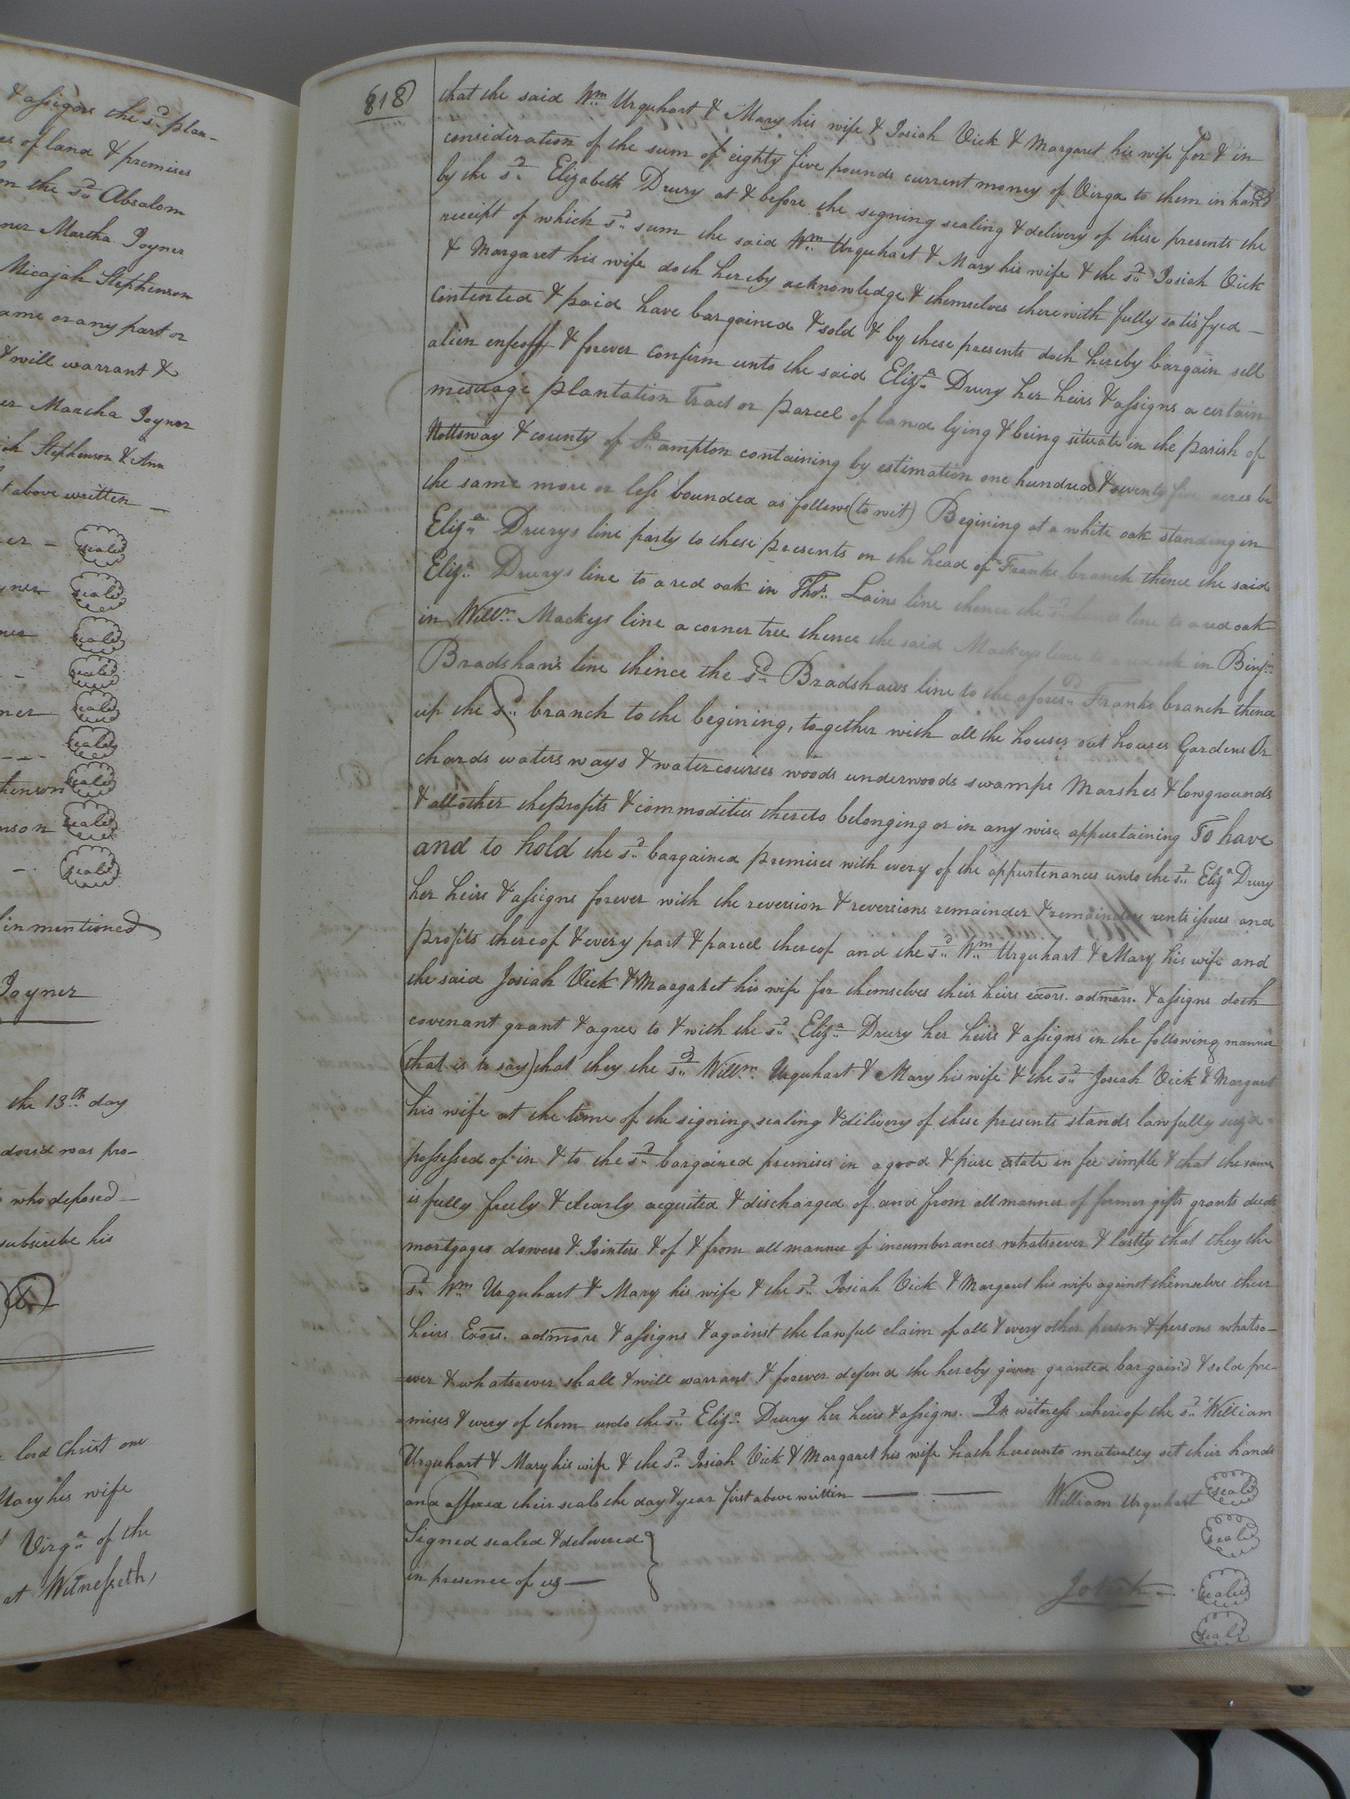 & assigns the sd. plan-
es of land & premises
on the sd. Absalom
ner Martha Joyner
Micajah Stephenson
ame or any part or
& will warrant &
er Martha Joyner
iah Stephenson & Ann
t above written —
er - seale
yner seale
ner seale
- - seale
ner seale
- - - seale
henson seale
nson seale
- - seale
in mentioned
Joyner
the 13th day
dored was pro-
who deposed —
subscribe his
r lord Christ one
Mary his wife
Virga of the
at Witnesseth,
818
that the said Wm. Urquhart & Mary his wife & Josiah Vick & Margaret his wife for & in
consideration of the sum of eighty five pounds current money of Virga to them in hand
by the sd. Elizabeth Drury at & before the signing sealing & delivery of these presents the
receipt of which sd. sum the said Wm. Urquhart & Mary his wife & the sd. Josiah Vick
& Margaret his wife doth hereby acknowledge & themselves therewith fully satisfyed —
contented & paid have bargained & sold & by these presents doth hereby bargain sell
alien enfeoff & forever confirm unto the said Eliza. Drury her heirs & assigns a certain
message plantation Tract or parcel of land lying & being situate in the parish of
Nottoway & county of So.ampton containing by estimation one hundred & seventy five acres be
the same more or less bounded as follows (to wit) Begining at a white oak standing in
Eliza. Drurys line party to these presents on the head of Franks branch thence the said
Eliza. Drurys line to a red oak in Thos. Lains line thence the sd. Lains line to a red oak
in Willm. Mackeys line a corner tree thence the said Mackeys line to a red oak in Binjn.
Bradshaws line thence the sd. Bradshaws line to the aforesd. Franks branch thence
up the sd. branch to the begining, together with all the houses out houses Gardens Or
chards waters ways & watercourses woods underwoods swamps Marshes & lowgrounds
& all other the profits & commodities thereto belonging or in any wise appurtaining To have
and to hold the sd. bargained premises with every of the appurtenances unto the sd. Eliza Drury
her heirs & assigns forever with the reversion & reversions remainder & remainders rents issues and
profits thereof & every part & parcel thereof and the sd. Wm. Urquhart & Mary his wife and
the said Josiah Vick & Margaret his wife for themselves their heirs exors. admors. & assigns doth
covenant grant & agree to & with the sd. Eliza. Drury her heirs & assigns in the following manner
(that is to say) that they the sd. Willm. Urquhart & Mary his wife & the sd. Josiah Vick & Margaret
his wife at the time of the signing sealing & delivery of these presents stands lawfully seizd
possessed of in & to the sd. bargained premises in a good & pure estate in fee simple & that the same
is fully freely & clearly acquited & discharged of and from all manner of former gifts grants deeds
mortgages dowers & Jointers & of & from all manner of incumberances whatsoever & lastly that they the
sd. Wm. Urquhart & Mary his wife & the sd. Josiah Vick & Margaret his wife against themselves their
heirs Exors. admors & assigns & against the lawful claim of all & every other person & persons whatso-
=ever & whatsoever shall & will warrant & forever defend the hereby given granted bargaind & sold pre-
=mises & every of them unto the sd. Eliza. Drury her heirs & assigns. In witness whereof the sd. William
Urquhart & Mary his wife & the sd. Josiah Vick & Margaret his wife hath hereunto mutually set their hands
and affixed their seals the day & year first above written — — William Urquhart seale
Signed sealed & delivered seale
in presence of us — Josiah — seale
seale